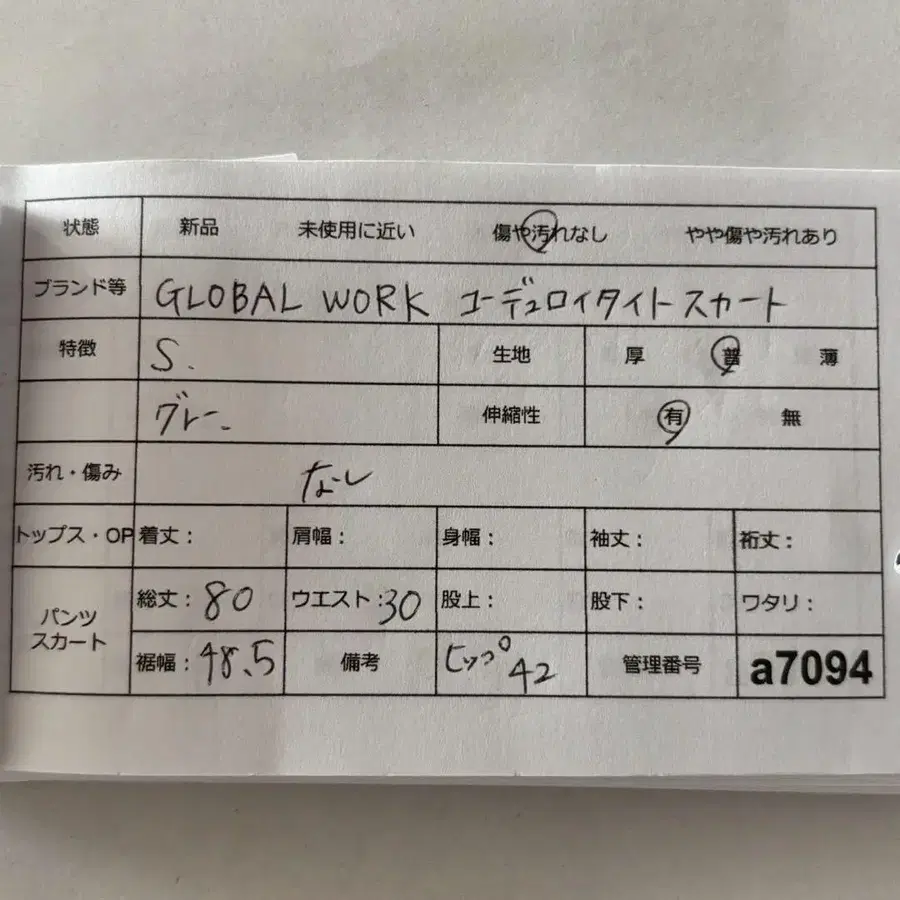 状態 新品 未使用に近い 傷や汚れなし やや傷や汚れあり
ブランド等 GLOBAL WORK コーデュロイタイトスカート
特徴 S. 生地 厚 普 薄
グレー 伸縮性 有 無
汚れ・傷み なし
トップス・OP 着丈： 肩幅： 身幅： 袖丈： 裄丈：
パンツ スカート 総丈：80 ウエスト：30 股上： 股下： ワタリ：
裾幅：48.5 備考 ヒップ42 管理番号 a7094